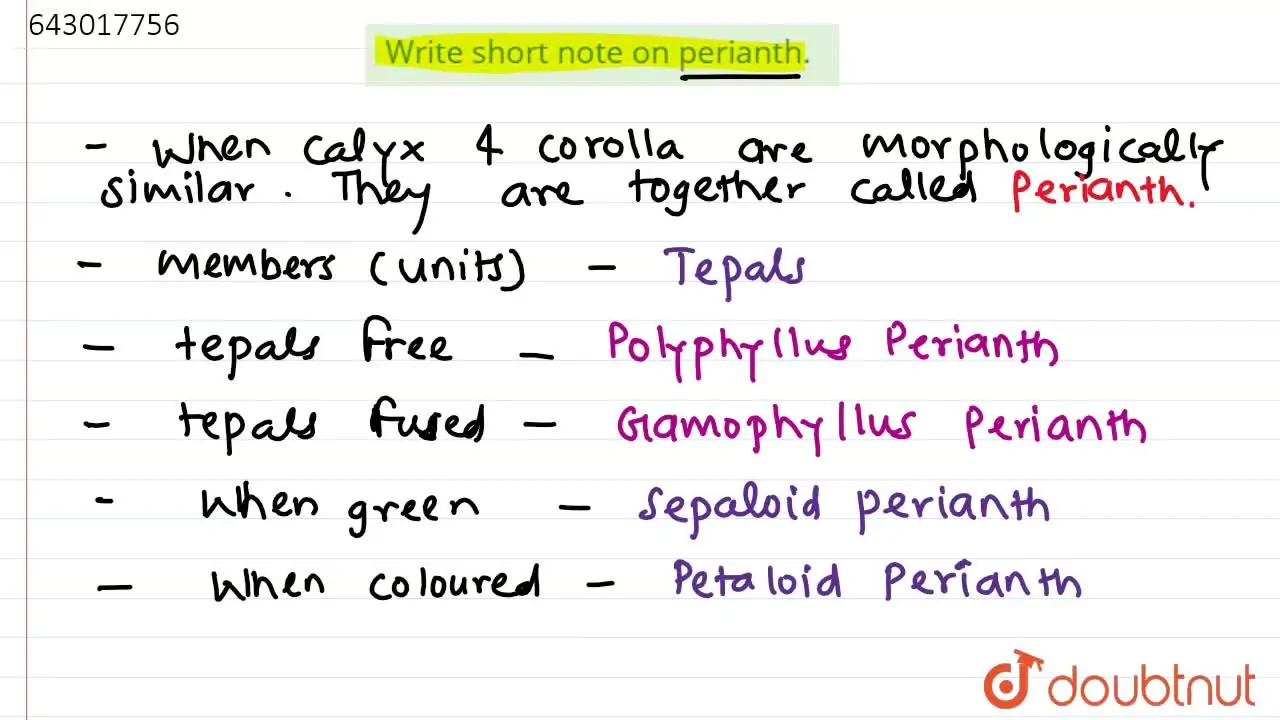 643017756
Write short note on perianth.
- When calyx & corolla are morphologically
similar. They are together called Perianth.
- members (units) - Tepals
- tepals free - Polyphyllus Perianth
- tepals fused - Gamophyllus Perianth
- when green - Sepaloid perianth
- when coloured - Petaloid Perianth
doubtnut